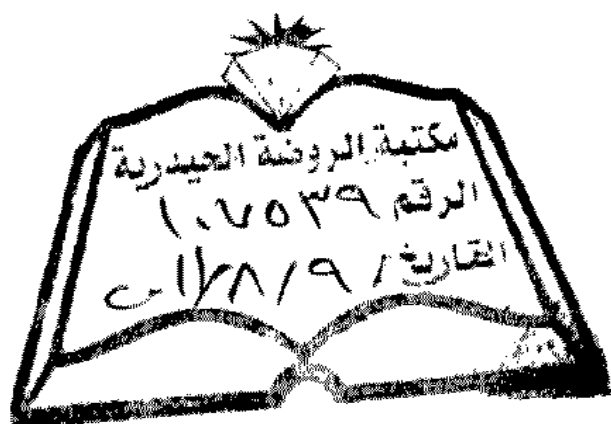 مكتبة الروضة الحيدرية
الرقم ١٠٧٥٣٩
التاريخ /